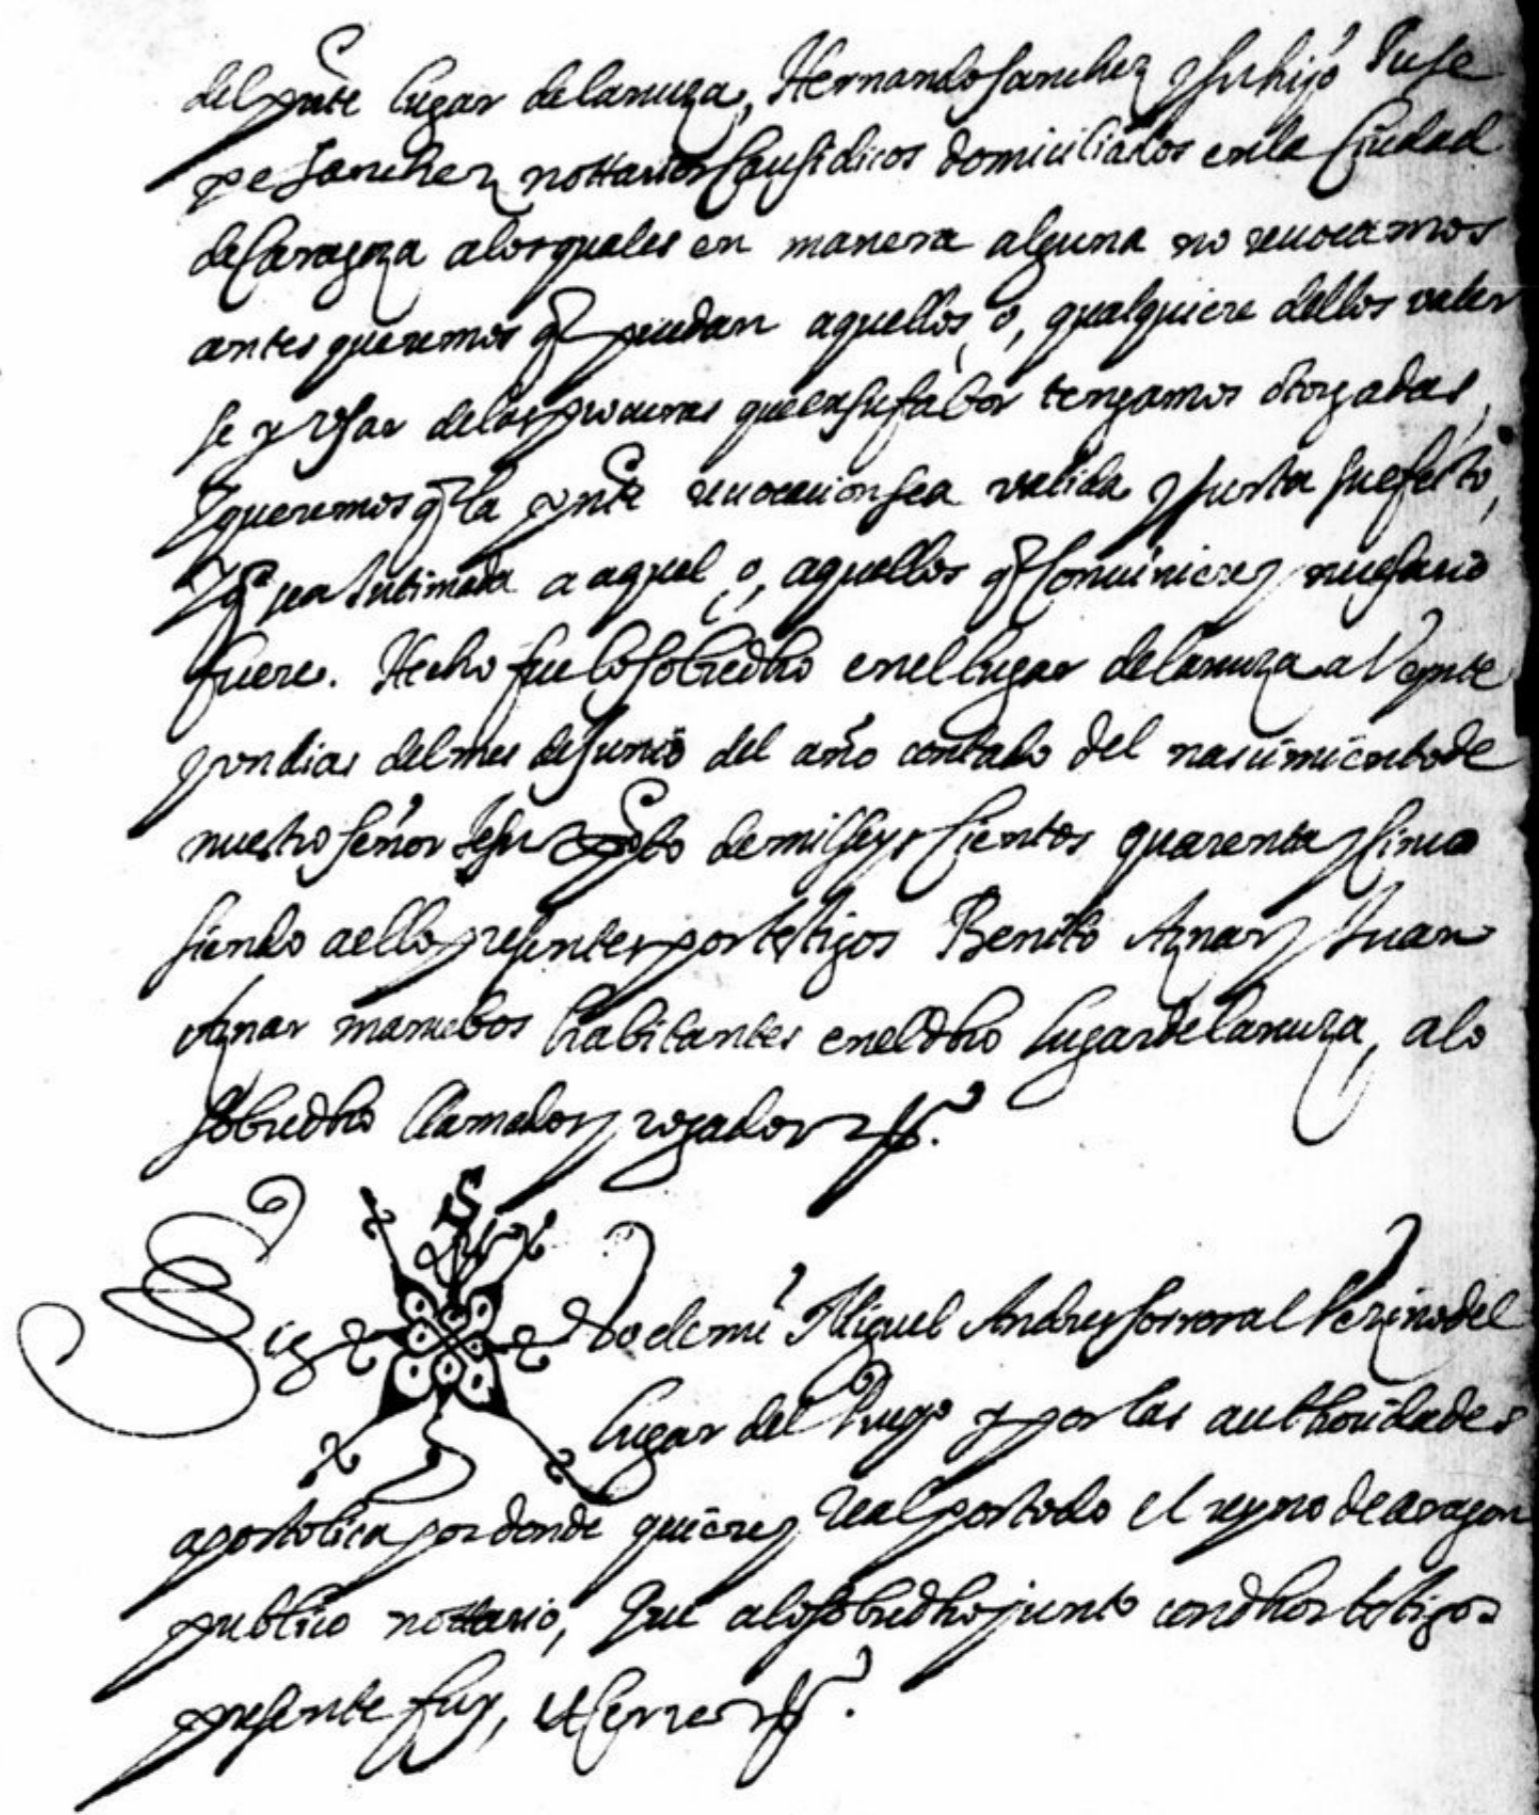 del pnte lugar de lanuza, Hernando Sanchez y su hijo Juse
pe Sanchez nottarios Causidicos domiciliados en la Ciudad
de Caragoza a los quales en manera alguna no reuocamos
antes queremos q puedan aquellos, o, qualquiere dellos valer
se y Vsar de las procuras que en su fabor tengamos otorgadas,
Y queremos q la pnte reuocacion sea valida y surta su efecto,
Y q sea Intimada a aquel, o, aquellos q Conuiniere y necessario
fuere. Hecho fue lo sobredho en el lugar de lanuza a Veynte
y vn dias del mes de Junio del año contado del nascimiento de
nuestro señor Jesu Xpto de mil seys cientos quarenta y cinco
siendo a ello presentes por testigos Benito Aznar y Juan
Aznar mancebos habitantes en el dho lugar de lanuza, a lo
sobredho llamados y rogados
Sig no de mi Miguel Andres Sorrosal Vezino del
lugar del Pueyo y por las authoridades
apostolica por donde quiere y Real por todo el reyno de aragon
publico nottario, Que a lo sobredho junto con dhos testigos
presente fuy, et Cerre